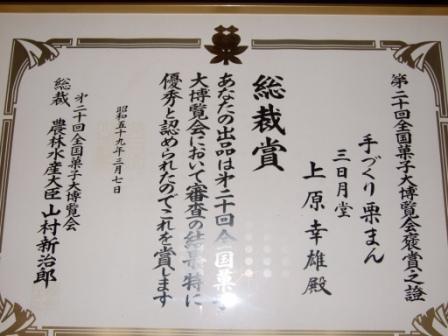 第二十回全国菓子大博覧会褒賞之證
手づくり栗まん
三日月堂
上原幸雄殿
総裁賞
あなたの出品は第二十回全国菓子
大博覧会において審査の結果特に
優秀と認められたのでこれを賞します
昭和五十九年三月七日
第二十回全国菓子大博覧会
総裁 農林水産大臣 山村新治郎